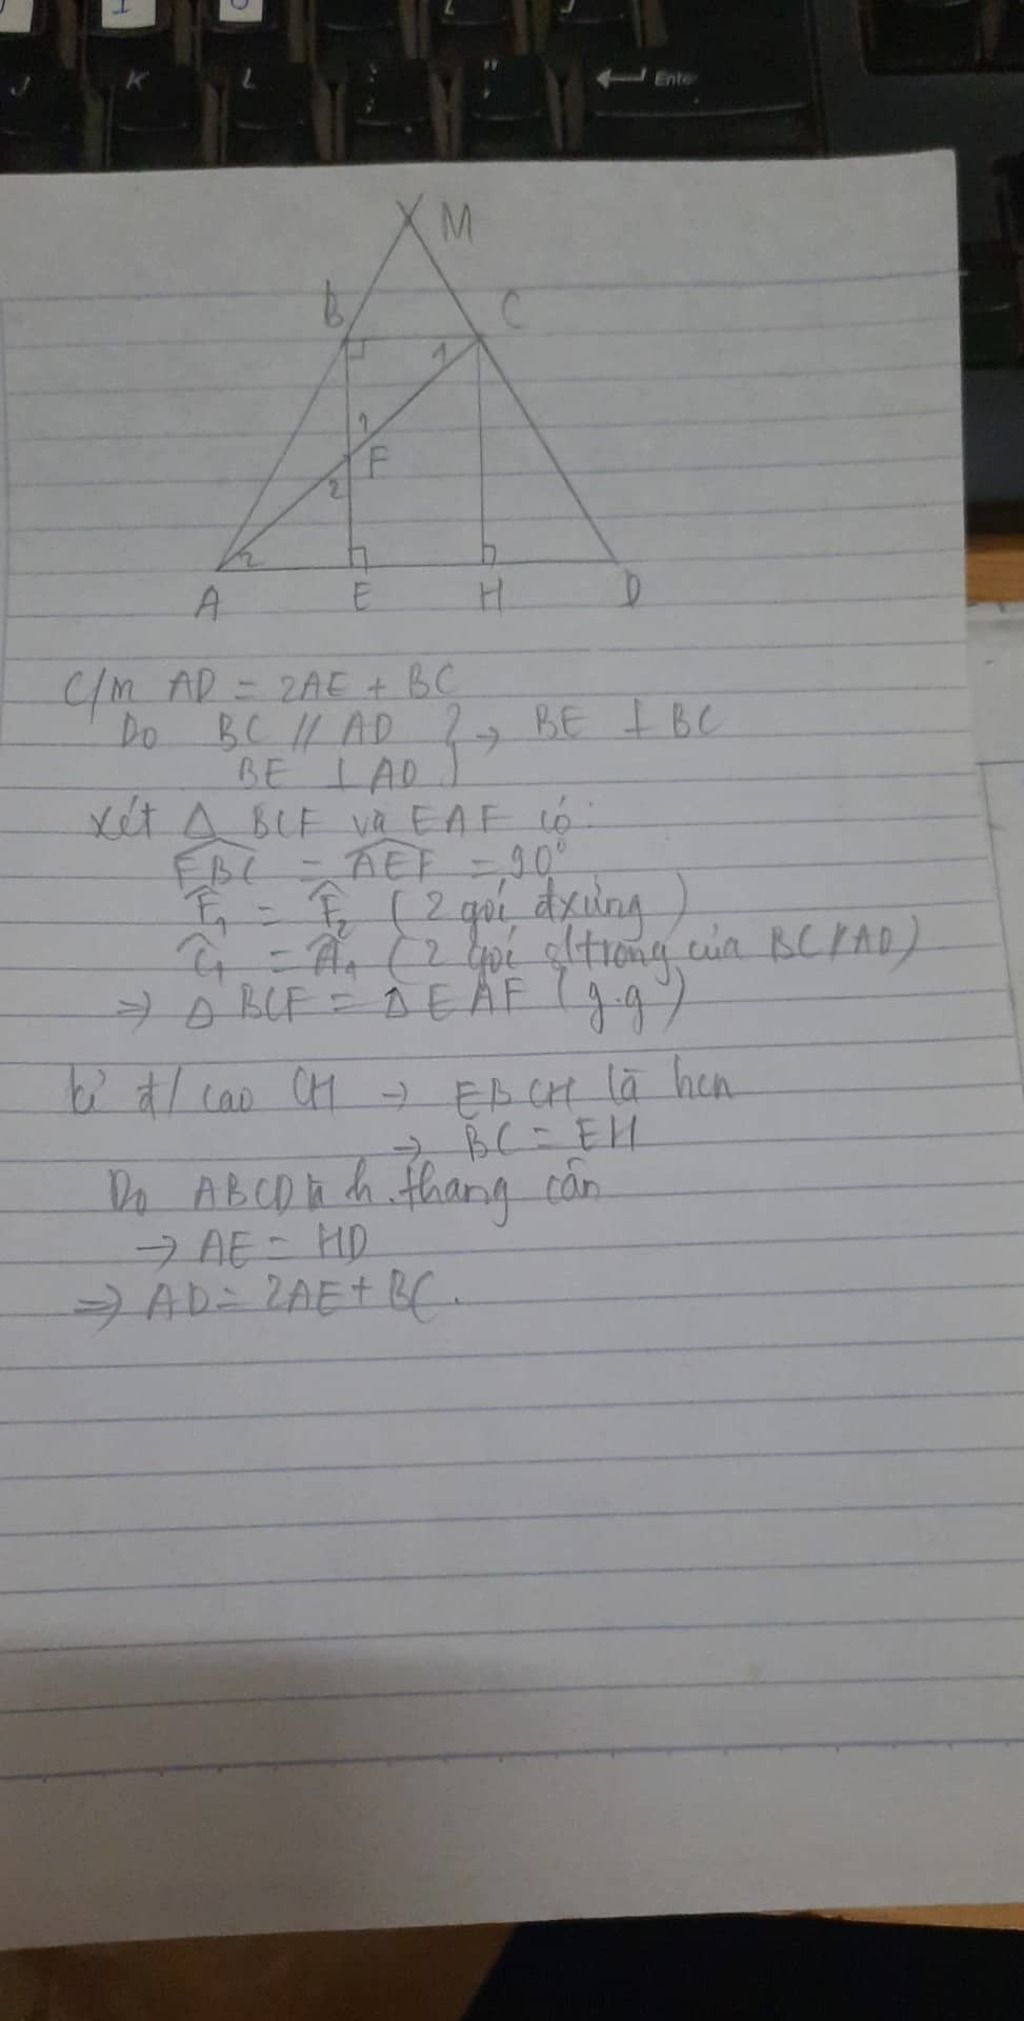 J K L ; " Enter
M
B C
1
1
F
2
2
A E H D
C/m AD = 2AE + BC
Do BC // AD } → BE ⊥ BC
BE ⊥ AD
Xét Δ BCF và EAF có:
FBC = AEF = 90°
F̂₁ = F̂₂ (2 gói đxứng)
Ĉ₁ = Â₁ (2 gói sltrong của BC//AD)
⇒ Δ BCF = Δ EAF (g.g)
kẻ đ/cao CH → EBCH là hcn
→ BC = EH
Do ABCD là h.thang cân
→ AE = HD
⇒ AD = 2AE + BC.